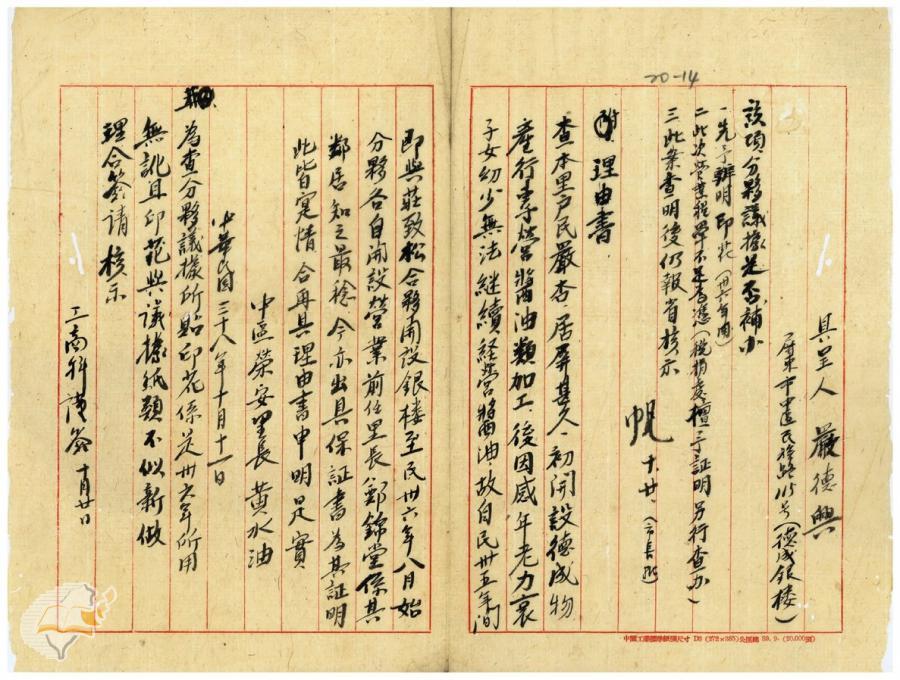 20-14
具呈人 嚴德興
屏東市中區民族路115号(德成銀楼)
該項分夥議據是否補办
一先予辦明印花(卅六年用)
二此次營業稅單不足為憑(稅捐處擅予証明另行查办)
三此案查明後仍報省核示
十、廿、
附 理由書
查本里户民嚴杏、居屏甚久、初開設德成物
產行專營醬油類加工、後因感年老力衰
子女幼少無法継續経営醬油故自民卅五年間
即與莊致松合夥開設銀楼至民卅六年八月始
分夥各自開設營業前任里長鄭錦堂係其
鄰居知之最稔今亦出具保証書為其証明
此皆寔情合再具理由書申明是實
中區榮安里長 黃水油
中華民國三十八年十月十一日
為查分夥議據所貼印花係是卅六年所用
無訛且印花與議據紙類不似新做
理合簽请 核示
工商科 簽 十月廿日